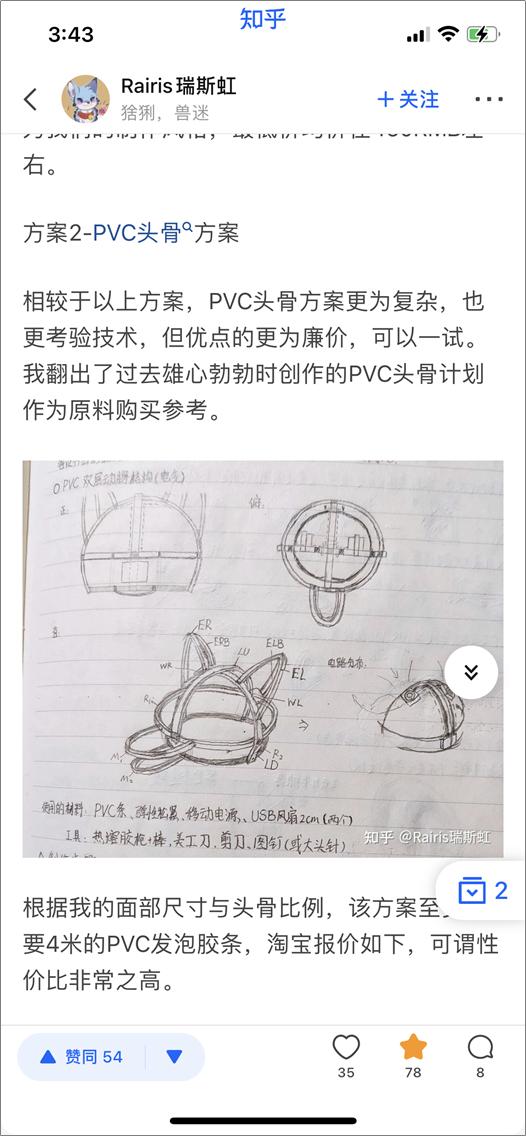 3:43
知乎
Rairis瑞斯虹
猞猁，兽迷
+ 关注
右。
方案2-PVC头骨方案
相较于以上方案，PVC头骨方案更为复杂，也
更考验技术，但优点的更为廉价，可以一试。
我翻出了过去雄心勃勃时创作的PVC头骨计划
作为原料购买参考。
ER
EDB
LU
ELB
EL
WR
WL
R₁
R₂
LD
M₁
M₂
使用的材料: PVC条、弹性靴罢、移动电源、USB风扇2cm(两个)
工具: 热熔胶枪+棒,美工刀、剪刀、图钉(或大头针)
知乎 @Rairis瑞斯虹
2
根据我的面部尺寸与头骨比例，该方案至
要4米的PVC发泡胶条，淘宝报价如下，可谓性
价比非常之高。
赞同 54
35
78
8